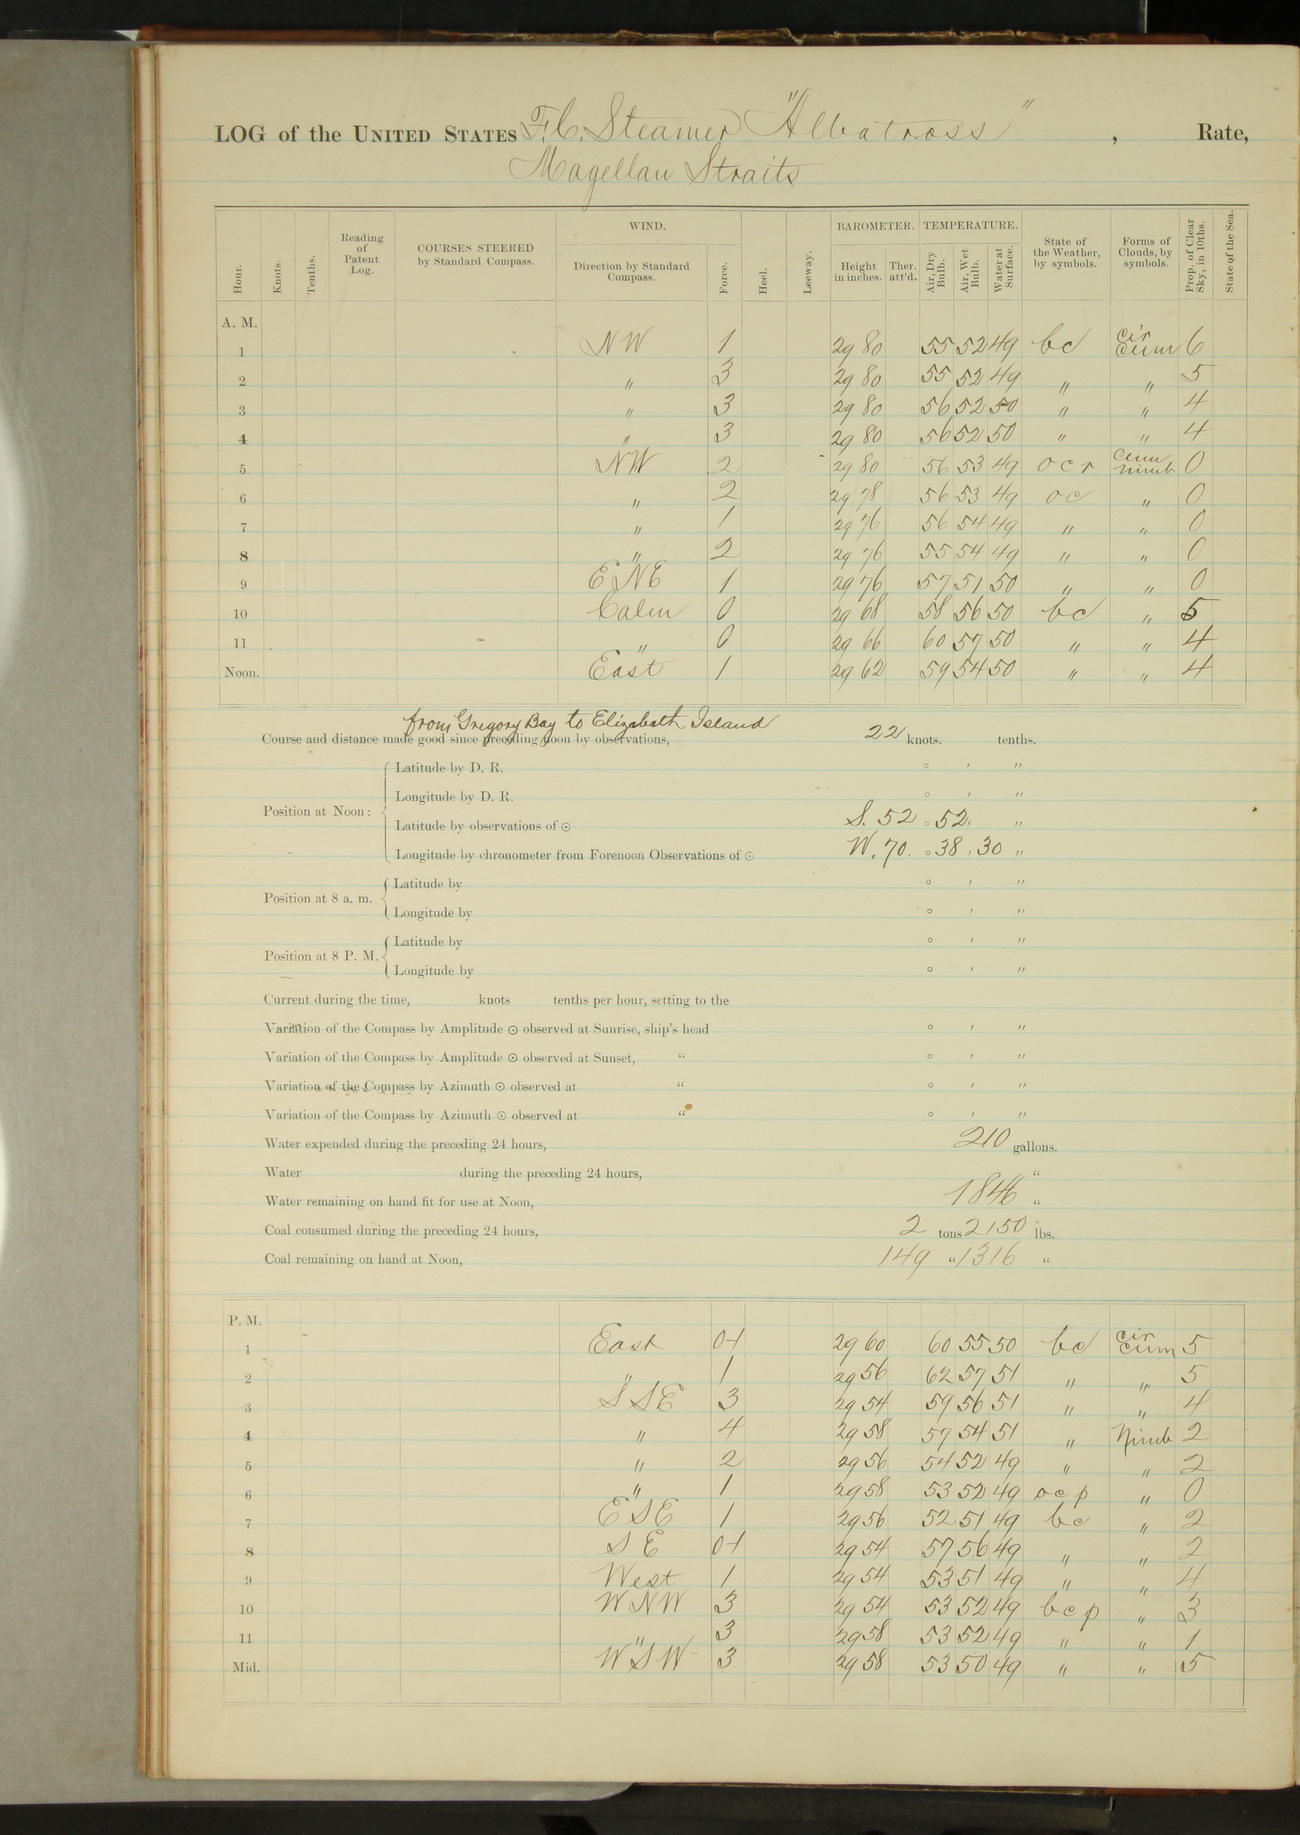 LOG of the UNITED STATES F.C. Steamer "Albatross" , Rate,
Magellan Straits
Hour. Knots. Tenths. Reading of Patent Log. COURSES STEERED by Standard Compass. WIND. Direction by Standard Compass. Force. Heel. Leeway. BAROMETER. Height in inches. Ther. att'd. TEMPERATURE. Air, Dry Bulb. Air, Wet Bulb. Water at Surface. State of the Weather, by symbols. Forms of Clouds, by symbols. Prop. of Clear Sky, in 10ths. State of the Sea.
A. M.
1 NW 1 29 80 55 52 49 bc Cir Cum 6
2 " 3 29 80 55 52 49 " " 5
3 " 3 29 80 56 52 50 " " 4
4 " 3 29 80 56 52 50 " " 4
5 NW 2 29 80 56 53 49 ocr Cum Nimb 0
6 " 2 29 78 56 53 49 oc " 0
7 " 1 29 76 56 54 49 " " 0
8 " 2 29 76 55 54 49 " " 0
9 ENE 1 29 76 57 51 50 " " 0
10 Calm 0 29 68 58 56 50 bc " 5
11 " 0 29 66 60 57 50 " " 4
Noon. East 1 29 62 59 54 50 " " 4
from Gregory Bay to Elizabeth Island
Course and distance made good since preceding noon by observations, 22 knots. tenths.
Position at Noon:
Latitude by D. R. ° ′ ″
Longitude by D. R. ° ′ ″
Latitude by observations of ☉ S. 52 ° 52 ′ ″
Longitude by chronometer from Forenoon Observations of ☉ W. 70. ° 38 ′ 30 ″
Position at 8 a. m.
Latitude by ° ′ ″
Longitude by ° ′ ″
Position at 8 P. M.
Latitude by ° ′ ″
Longitude by ° ′ ″
Current during the time, knots tenths per hour, setting to the
Variation of the Compass by Amplitude ☉ observed at Sunrise, ship's head ° ′ ″
Variation of the Compass by Amplitude ☉ observed at Sunset, " ° ′ ″
Variation of the Compass by Azimuth ☉ observed at " ° ′ ″
Variation of the Compass by Azimuth ☉ observed at " ° ′ ″
Water expended during the preceding 24 hours, 210 gallons.
Water during the preceding 24 hours, "
Water remaining on hand fit for use at Noon, 1846 "
Coal consumed during the preceding 24 hours, 2 tons 2150 lbs.
Coal remaining on hand at Noon, 149 " 1316 "
P. M.
1 East 0-1 29 60 60 55 50 bc Cir Cum 5
2 " 1 29 56 62 57 51 " " 5
3 SSE 3 29 54 59 56 51 " " 4
4 " 4 29 58 57 54 51 " Nimb 2
5 " 2 29 56 54 52 49 " " 2
6 " 1 29 58 53 52 49 ocp " 0
7 ESE 1 29 56 52 51 49 bc " 2
8 SE 0-1 29 54 57 56 49 " " 2
9 West 1 29 54 53 51 49 " " 4
10 WNW 3 29 54 53 52 49 bcp " 3
11 " 3 29 58 53 52 49 " " 1
Mid. WSW 3 29 58 53 50 49 " " 5